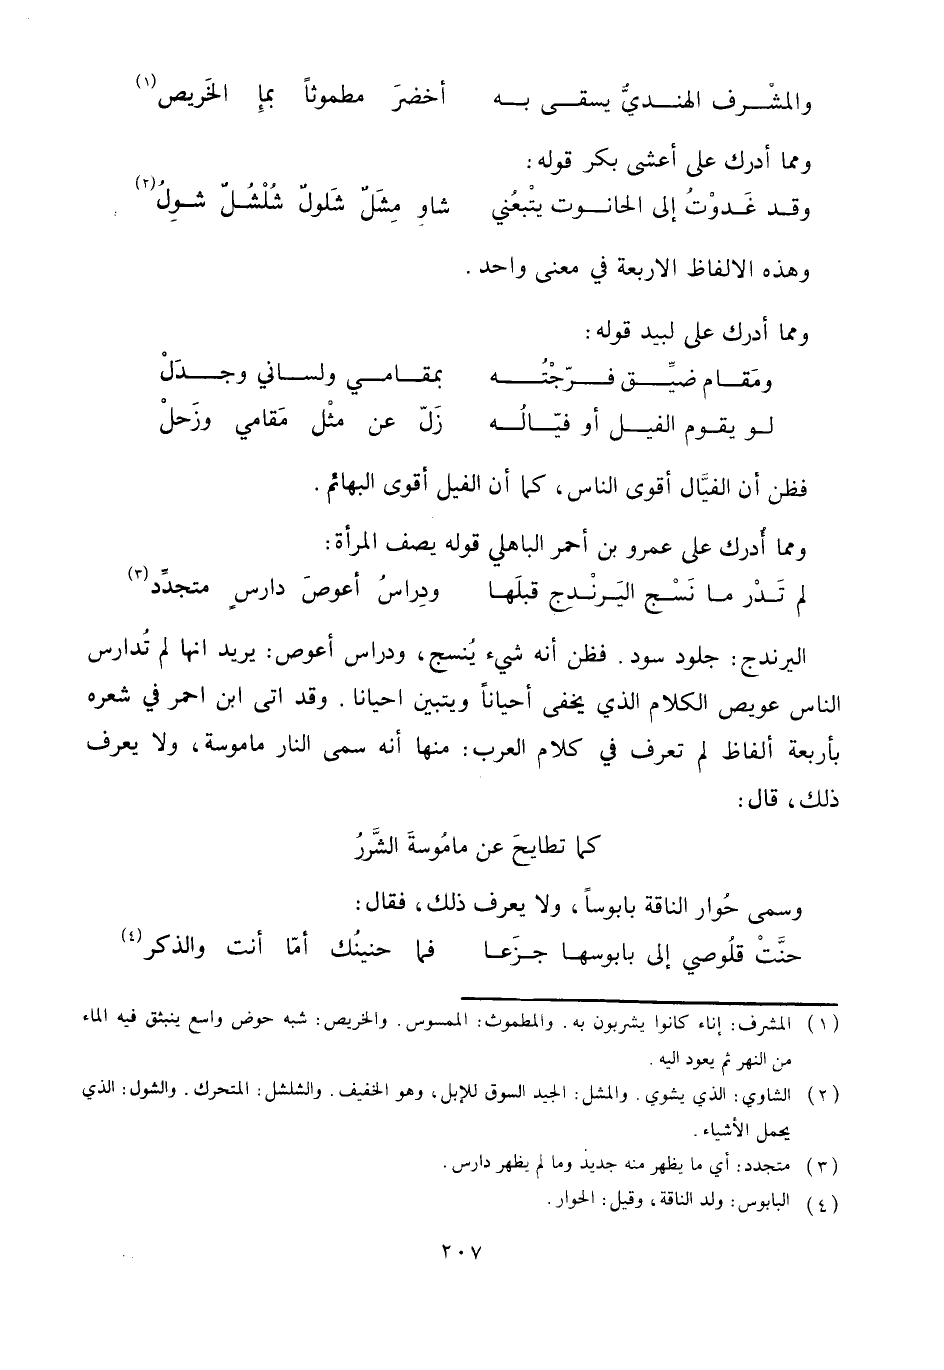 والمشْرف الهنديُّ يسقى به أخضرَ مطموثاً بماِ الخَريص(١)
ومما أدرك على أعشى بكر قوله:
وقد غَدوْتُ إلى الحانوت يتْبعُني شاوٍ مِشَلّ شَلولٌ شُلْشُلٌ شوِلُ(٢)
وهذه الالفاظ الاربعة في معنى واحد.
ومما أدرك على لبيد قوله:
ومَقام ضيِّق فرّجْتُه بمقامي ولساني وجدَلْ
لو يقوم الفيل أو فيّالُه زَلّ عن مثْل مَقامي وزَحلْ
فظن أن الفيَّال أقوى الناس، كما أن الفيل أقوى البهائم.
ومما أُدرك على عمرو بن أحمر الباهلي قوله يصف المرأة:
لم تَدْر ما نَسْج اليَرنْدج قبلَها ودِراسُ أعوصَ دارسٍ متجدِّد(٣)
اليرندج: جلود سود. فظن أنه شيء يُنسج، ودراس أعوص: يريد انها لم تُدارس
الناس عويص الكلام الذي يخفى أحياناً ويتبين احيانا. وقد اتى ابن احمر في شعره
بأربعة ألفاظ لم تعرف في كلام العرب: منها أنه سمى النار ماموسة، ولا يعرف
ذلك، قال:
كما تطايحَ عن مامُوسةَ الشَّررُ
وسمى حُوار الناقة بابوساً، ولا يعرف ذلك، فقال:
حنَّتْ قلُوصي إلى بابوسها جزعا فما حنينُك أمّا أنت والذكر(٤)
(١) المشرف: إناء كانوا يشربون به. والمطموث: الممسوس. والخريص: شبه حوض واسع ينبثق فيه الماء
من النهر ثم يعود اليه.
(٢) الشاوي: الذي يشوي. والمشل: الجيد السوق للإبل، وهو الخفيف. والشلشل: المتحرك. والشول: الذي
يحمل الأشياء.
(٣) متجدد: أي ما يظهر منه جديد وما لم يظهر دارس.
(٤) البابوس: ولد الناقة، وقيل: الحوار.
٢٠٧